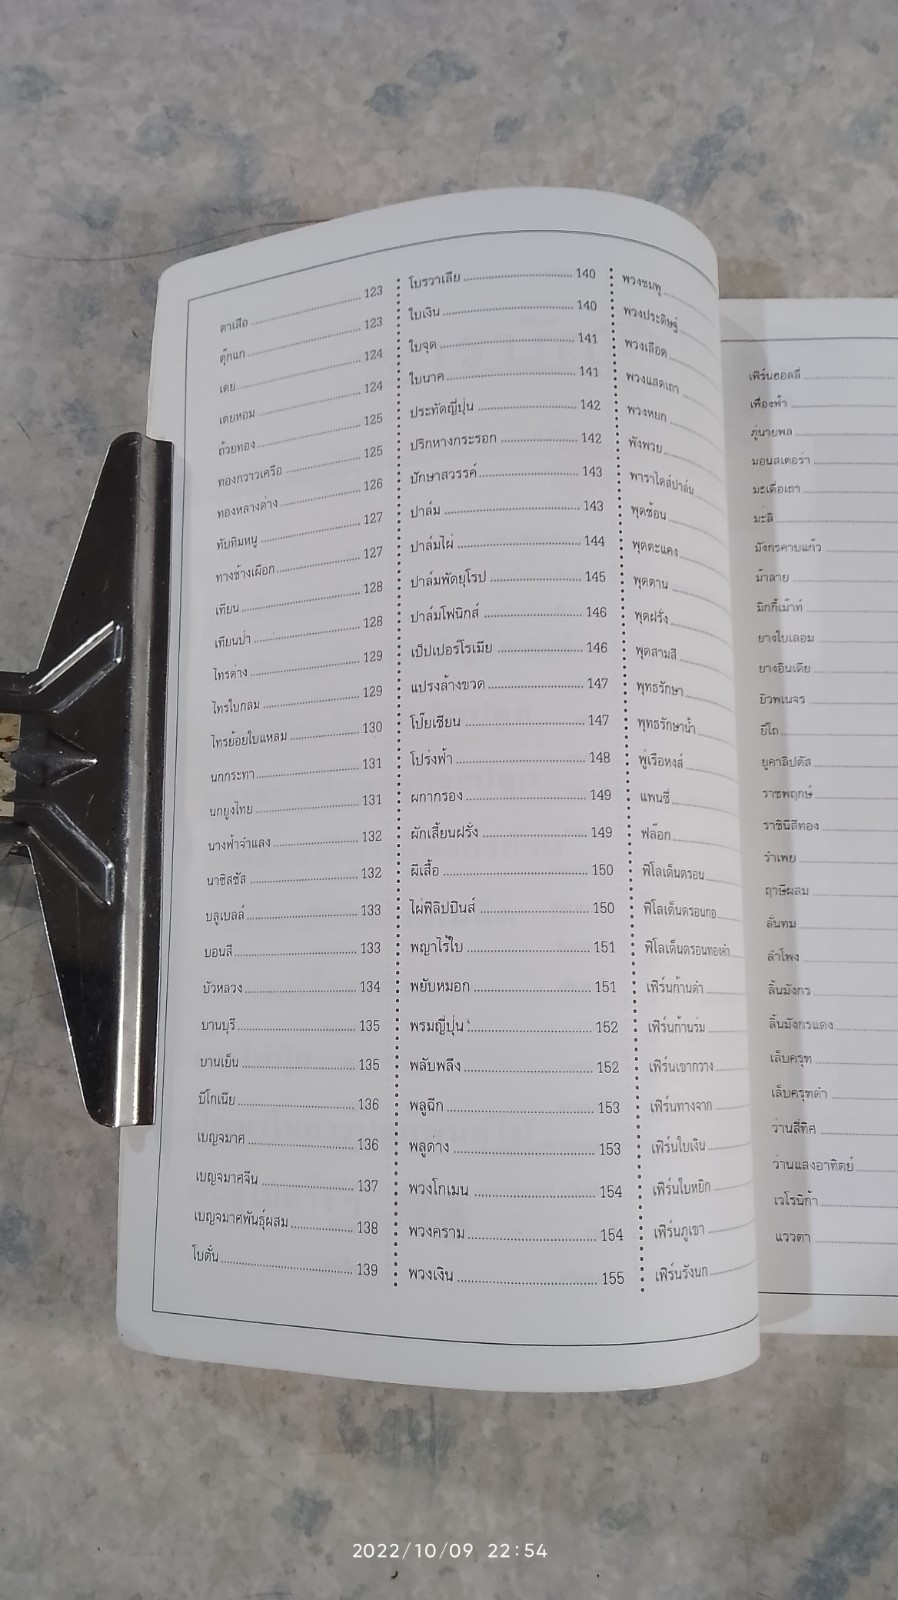 ตาเสือ 123
ตุ๊กแก 123
เตย 124
เตยหอม 124
ถ้วยทอง 125
ทองกวาวเครือ 125
ทองหลางด่าง 126
ทับทิมหนู 127
ทางช้างเผือก 127
เทียน 128
เทียนป่า 128
ไทรด่าง 129
ไทรใบกลม 129
ไทรย้อยใบแหลม 130
นกกระทา 131
นกยูงไทย 131
นางฟ้าจำแลง 132
นาซิสซัส 132
บลูเบลล์ 133
บอนสี 133
บัวหลวง 134
บานบุรี 135
บานเย็น 135
บีโกเนีย 136
เบญจมาศ 136
เบญจมาศจีน 137
เบญจมาศพันธุ์ผสม 138
โบตั๋น 139
โบรวาเลีย 140
ใบเงิน 140
ใบจุด 141
ใบนาค 141
ประทัดญี่ปุ่น 142
ปริกหางกระรอก 142
ปักษาสวรรค์ 143
ปาล์ม 143
ปาล์มไผ่ 144
ปาล์มพัดยุโรป 145
ปาล์มโฟนิกส์ 146
เป็ปเปอร์โรเมีย 146
แปรงล้างขวด 147
โป๊ยเซียน 147
โปร่งฟ้า 148
ผกากรอง 149
ผักเสี้ยนฝรั่ง 149
ผีเสื้อ 150
ไผ่ฟิลิปปินส์ 150
พญาไร้ใบ 151
พยับหมอก 151
พรมญี่ปุ่น 152
พลับพลึง 152
พลูฉีก 153
พลูด่าง 153
พวงโกเมน 154
พวงคราม 154
พวงเงิน 155
พวงชมพู
พวงประดิษฐ์
พวงเลือด
พวงแสดเถา
พวงหยก
พังพวย
พาราไดส์ปาล์ม
พุดซ้อน
พุดตะแคง
พุดตาน
พุดฝรั่ง
พุดสามสี
พุทธรักษา
พุทธรักษาน้ำ
พู่เรือหงส์
แพนซี
ฟล๊อก
ฟิโลเด็นดรอน
ฟิโลเด็นดรอนกอ
ฟิโลเด็นดรอนทองคำ
เฟิร์นก้านดำ
เฟิร์นก้านร่ม
เฟิร์นเขากวาง
เฟิร์นทางจาก
เฟิร์นใบเงิน
เฟิร์นใบหยิก
เฟิร์นภูเขา
เฟิร์นรังนก
เฟิร์นฮอลลี่
เฟื่องฟ้า
ภู่นายพล
มอนสเตอร่า
มะเดื่อเถา
มะลิ
มังกรคาบแก้ว
ม้าลาย
มิกกี้เม้าท์
ยางใบเลอม
ยางอินเดีย
ยิวพเนจร
ยี่โถ
ยูคาลิปตัส
ราชพฤกษ์
ราชินีสีทอง
รำเพย
ฤาษีผสม
ลั่นทม
ลำโพง
ลิ้นมังกร
ลิ้นมังกรแดง
เล็บครุฑ
เล็บครุฑดำ
ว่านสี่ทิศ
ว่านแสงอาทิตย์
เวโรนิก้า
แววตา
2022/10/09 22:54